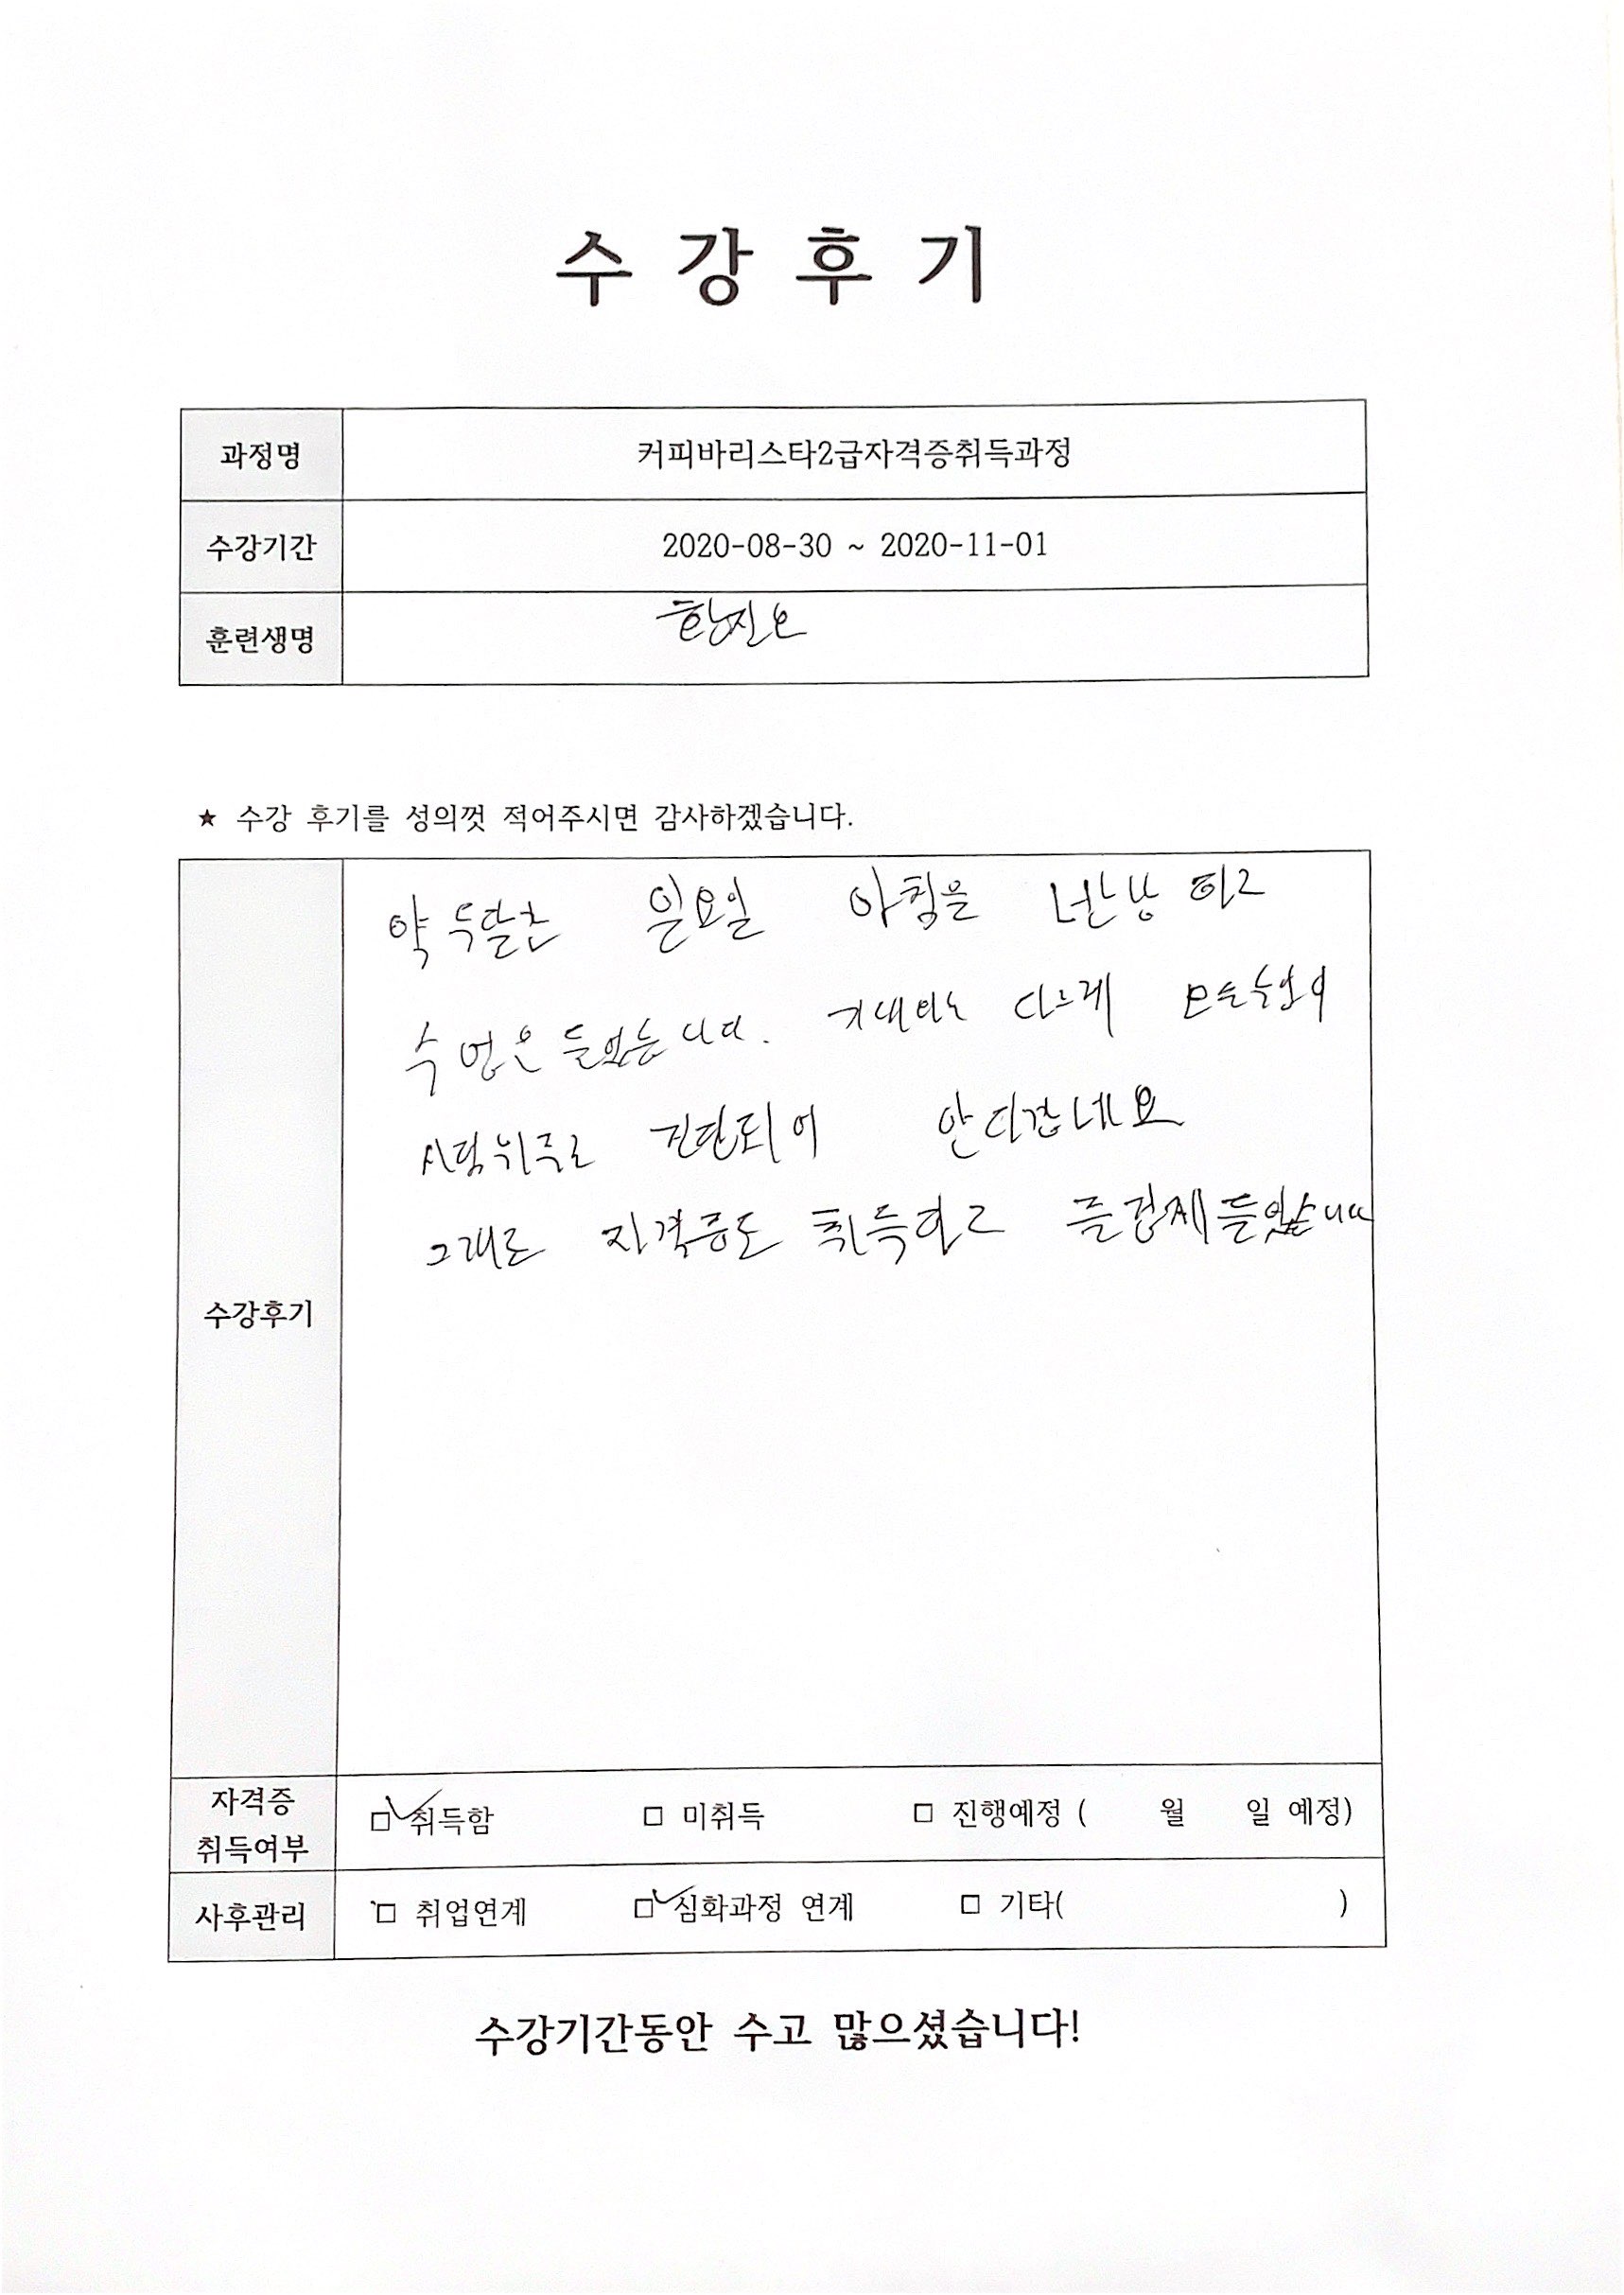 수강후기
과정명 커피바리스타2급자격증취득과정
수강기간 2020-08-30 ~ 2020-11-01
훈련생명
★ 수강 후기를 성의껏 적어주시면 감사하겠습니다.
약 두달간 일요일 아침을 반납 하고
수업을 들었습니다. 기대와는 다르게
시험위주로 진행되어 안타깝네요
그래도 자격증도 취득하고 즐겁게 들었습니다
수강후기
자격증 취득여부 □ 취득함 □ 미취득 □ 진행예정 ( 월 일 예정)
사후관리 □ 취업연계 □ 심화과정 연계 □ 기타( )
수강기간동안 수고 많으셨습니다!